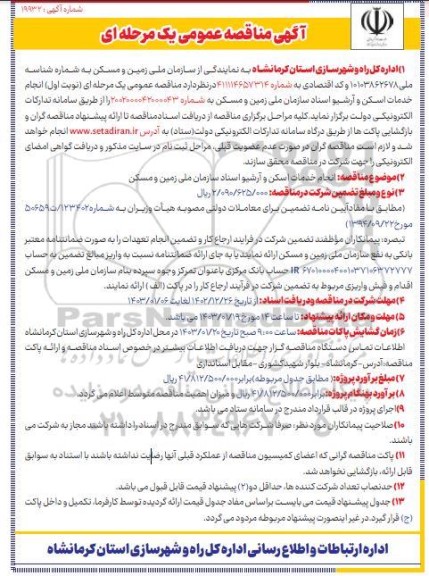 شماره آگهی : ۱۹۹۳۲
آگهی مناقصه عمومی یک مرحله ای
۱)اداره کل راه و شهرسازی استان کرمانشاه به نمایندگی از سازمان ملی زمین و مسکن به شماره شناسه
ملی۱۰۱۰۳۸۶۲۶۷۸ و کد اقتصادی به شماره ۴۱۱۱۴۶۵۷۳۱۴ درنظردارد مناقصه عمومی یک مرحله ای (نوبت اول) انجام
خدمات اسکن و آرشیو اسناد سازمان ملی زمین و مسکن به شماره ۲۰۰۲۰۰۰۰۴۲۰۰۰۰۴۳ را از طریق سامانه تدارکات
الکترونیکی دولت برگزار نماید.کلیه مراحل برگزاری مناقصه از دریافت اسنادمناقصه تا ارائه پیشنهاد مناقصه گران و
بازگشایی پاکت ها از طریق درگاه سامانه تدارکات الکترونیکی دولت(ستاد) به آدرس www.setadiran.ir انجام خواهد
شد و لازم است مناقصه گران در صورت عدم عضویت قبلی، مراحل ثبت نام در سایت مذکور و دریافت گواهی امضای
الکترونیکی را جهت شرکت در مناقصه محقق سازند.
۲)موضوع مناقصه: انجام خدمات اسکن و آرشیو اسناد سازمان ملی زمین و مسکن
۳)نوع و مبلغ تضمین شرکت در مناقصه: ۲/۰۹۰/۶۲۵/۰۰۰ ریال
(مطابق با مفادآیین نامه تضمین برای معاملات دولتی مصوبه هیأت وزیران به شماره۱۲۳۴۰۲/ت۵۰۶۵۹
مورخ۱۳۹۴/۰۹/۲۲)
تبصره: پیمانکاران مؤظفند تضمین شرکت در فرایند ارجاع کار و تضمین انجام تعهدات را به صورت ضمانتنامه معتبر
بانکی به نفع سازمان ملی زمین و مسکن ارائه نمایند یا به جای ارائه ضمانتنامه نسبت به واریز مبالغ تضمین به حساب
IR ۶۷۰۱۰۰۰۰۴۰۰۱۰۳۷۱۰۶۳۷۲۷۷۷ حساب بانک مرکزی باعنوان تمرکز وجوه سپرده بنام سازمان ملی زمین و مسکن
اقدام و فیش واریزی مربوط به تضمین شرکت در فرآیند ارجاع کار را در پاکت (الف) ارائه نمایند.
۴)مهلت شرکت در مناقصه و دریافت اسناد: از تاریخ ۱۴۰۲/۱۲/۲۶ لغایت ۱۴۰۳/۰۱/۰۶
۵) مهلت و مکان ارائه پیشنهاد: تا ساعت ۱۴ مورخ ۱۴۰۳/۰۱/۱۹ می باشد.
۶)زمان گشایش پاکات مناقصه: ساعت ۹:۰۰ صبح تاریخ ۱۴۰۳/۰۱/۲۰ در محل اداره کل راه و شهرسازی استان کرمانشاه
اطلاعات تماس دستگاه مناقصه گزار جهت دریافت اطلاعات بیشتر در خصوص اسناد مناقصه و ارائه پاکت
مناقصه:آدرس-کرمانشاه-بلوار شهیدکشوری-مقابل استانداری
۷)مبلغ برآورد پروژه:( مطابق جدول مربوطه)برابر۴۱/۸۱۲/۵۰۰/۰۰۰ ریال
۸)برآورد بهنگام پروژه:برابر۴۱/۸۱۲/۵۰۰/۰۰۰ ریال و میزان اهمیت مناقصه متوسط اعلام می گردد.
۹)اجرای پروژه در قالب قرارداد مندرج در سامانه ستاد می باشد.
۱۰)صلاحیت پیمانکاران مورد نظر: صرفا شرکت هایی که سوابق مندرج در اسناد را داشته باشند مجاز به شرکت می
باشند.
۱۱) پاکت مناقصه گرانی که اعضای کمیسیون مناقصه از عملکرد قبلی آنها رضایت نداشته باشند با استناد به سوابق
قابل ارائه، بازگشایی نخواهد شد.
۱۲)حدنصاب تعداد شرکت کننده ها، حداقل دو(۲) پیشنهاد قیمت قابل قبول می باشد.
۱۳) جدول پیشنهاد قیمت می بایست براساس مفاد جدول قیمت ارائه گردیده توسط کارفرما، تکمیل و داخل پاکت
(ج) قرار گیرد.در غیر اینصورت پیشنهاد مربوطه مردود می گردد.
اداره ارتباطات و اطلاع رسانی اداره کل راه و شهرسازی استان کرمانشاه